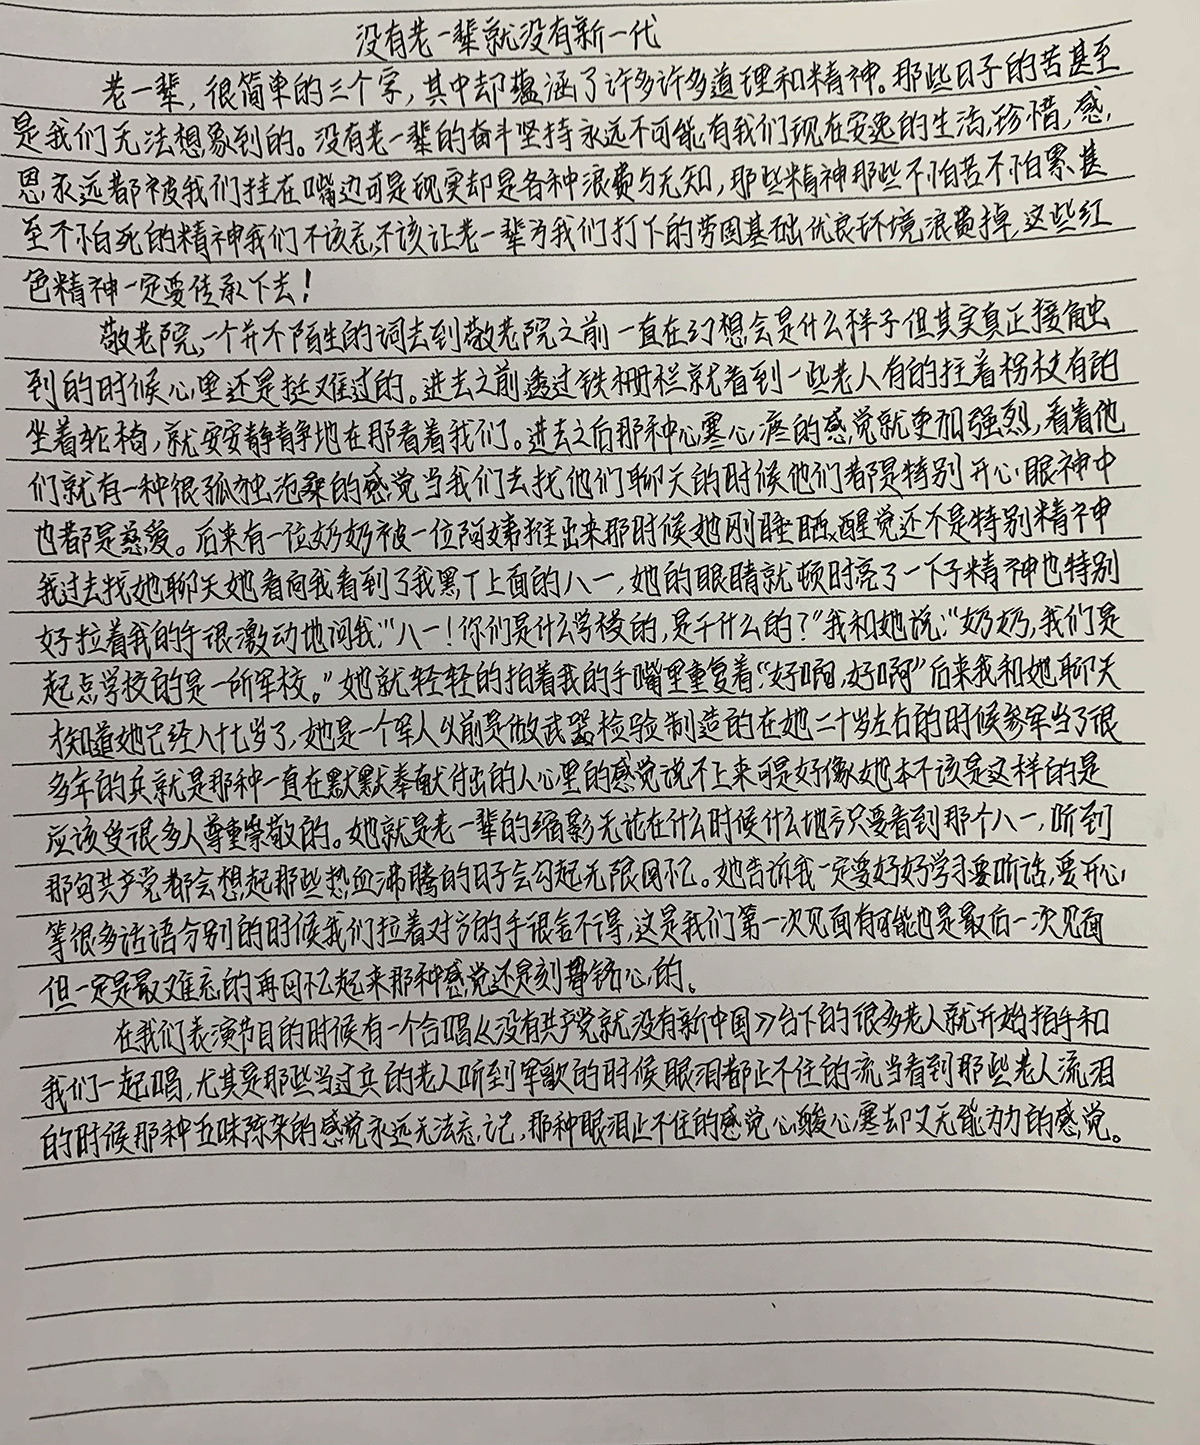 没有老一辈就没有新一代
老一辈，很简单的三个字，其中却蕴涵了许多许多道理和精神。那些日子的苦甚至
是我们无法想象到的。没有老一辈的奋斗坚持永远不可能有我们现在安逸的生活，珍惜，感
恩永远都被我们挂在嘴边可是现实却是各种浪费与无知，那些精神那些不怕苦不怕累甚
至不怕死的精神我们不该忘，不该让老一辈为我们打下的劳固基础优良环境浪费掉，这些红
色精神一定要传承下去！
敬老院，一个并不陌生的词去到敬老院之前一直在幻想会是什么样子但其实真正接触
到的时候心里还是挺难过的。进去之前透过铁栅栏就看到一些老人有的拄着拐杖有的
坐着轮椅，就安安静静地在那看着我们。进去之后那种心寒心疼的感觉就更加强烈，看着他
们就有一种很孤独沧桑的感觉当我们去找他们聊天的时候他们都是特别开心眼神中
也都是慈爱。后来有一位奶奶被一位阿姨推出来那时候她刚睡醒觉还不是特别精神
我过去找她聊天她看向我看到了我黑T上面的八一，她的眼睛就顿时亮了一下子精神也特别
好拉着我的手很激动地问我：“八一！你们是什么学校的，是干什么的？”我和她说：“奶奶，我们是
起点学校的是一所军校。”她就轻轻的拍着我的手嘴里重复着：“好啊，好啊”后来我和她聊天
才知道她已经八十七岁了，她是一个军人以前是做武器检验制造的在她二十岁左右的时候参军当了很
多年的兵就是那种一直在默默奉献付出的人心里的感觉说不上来可是好像她本不该是这样的是
应该受很多人尊重崇敬的。她就是老一辈的缩影无论在什么时候什么地方只要看到那个八一，听到
那句共产党都会想起那些热血沸腾的日子会勾起无限回忆。她告诉我一定要好好学习要听话，要开心，
等很多话语分别的时候我们拉着对方的手很舍不得，这是我们第一次见面有可能也是最后一次见面
但一定是最难忘的再回忆起来那种感觉还是刻骨铭心的。
在我们表演节目的时候有一个合唱《没有共产党就没有新中国》台下的很多老人就开始拍手和
我们一起唱，尤其是那些当过兵的老人听到军歌的时候眼泪都止不住的流当看到那些老人流泪
的时候那种五味陈杂的感觉永远无法忘记，那种眼泪止不住的感觉心酸心寒却又无能为力的感觉。